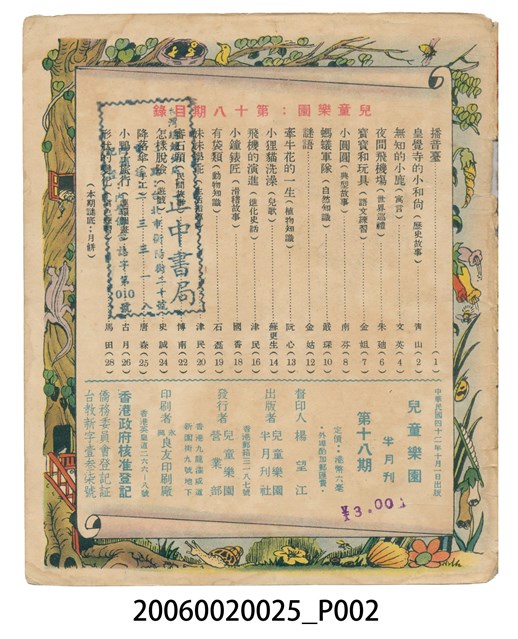 兒童樂園:第十八期目錄
播音臺……(1)
皇覺寺的小和尚(歷史故事)……青山(2)
無知的小施(寓言)……文英(4)
夜間飛機場(世界巡禮)……朱迪(6)
寶寶和玩具(語文練習)……金姐(7)
小圓圓(典型故事)……南芬(8)
螞蟻軍隊(自然知識)……嚴琛(10)
謎語……金姑(12)
牽牛花的一生(植物知識)……阮心(13)
小狸貓洗澡(兒歌)……蘇更生(14)
飛機的演進(進化史話)……津民(16)
小鐘錶匠(滑稽故事)……國香(18)
有袋類(動物知識)……石磊(19)
津民(20)
博南(22)
怎樣脫險(遊戲)……史誠(24)
降落傘(手工)……唐森(25)
古月(26)
馬田(28)
(本期謎底:月餅)
正中書局
三三一八
010號
中華民國四十二年十月一日出版
兒童樂園
半月刊
第十八期
定價:港幣六毫
·外埠酌加郵匯費·
¥3.00
督印人 楊望江
出版者 兒童樂園半月刊社
香港郵箱三一八七號
發行者 兒童樂園營業部
香港九龍漆咸道
新圍街九號地下
印刷者 永興 良友印刷廠
香港英皇道二六六—八號
香港政府核准登記
僑務委員會登記証
台教新字壹叁柒號
20060020025_P002